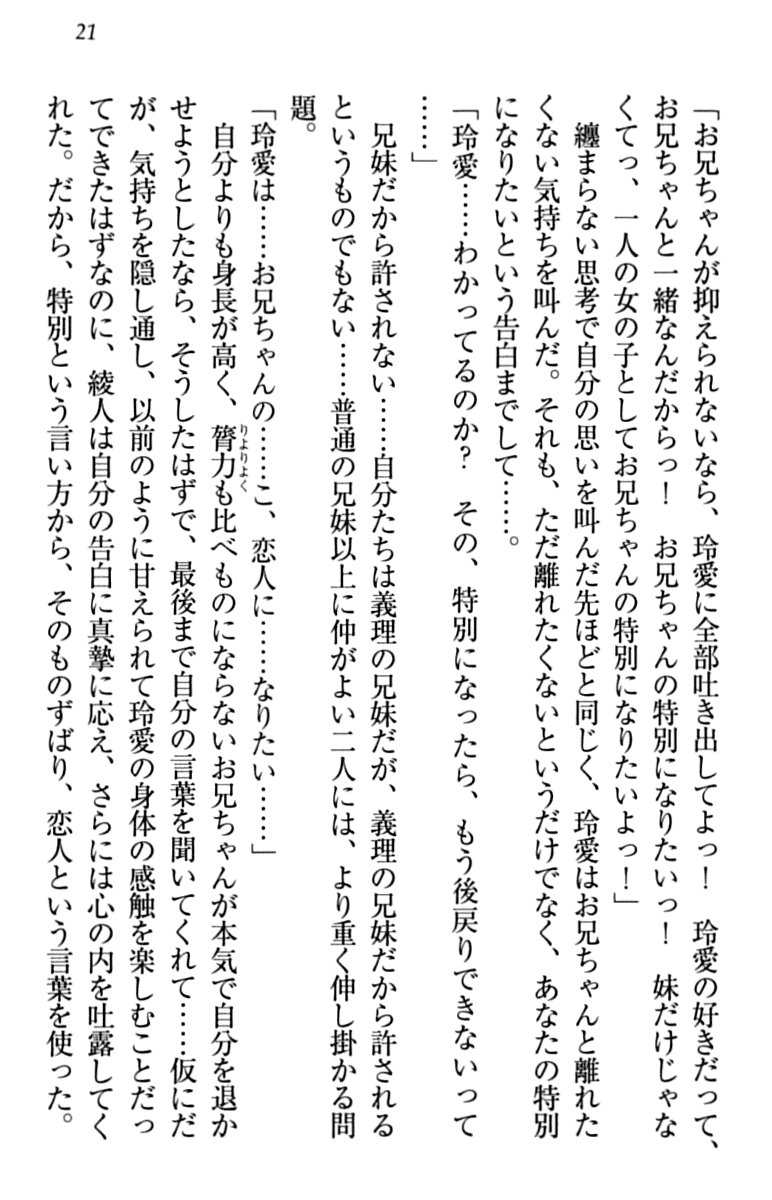 21
「お兄ちゃんが抑えられないなら、玲愛に全部吐き出してよっ！　玲愛の好きだって、
お兄ちゃんと一緒なんだからっ！　お兄ちゃんの特別になりたいっ！　妹だけじゃな
くてっ、一人の女の子としてお兄ちゃんの特別になりたいよっ！」
　纏まらない思考で自分の思いを叫んだ先ほどと同じく、玲愛はお兄ちゃんと離れた
くない気持ちを叫んだ。それも、ただ離れたくないというだけでなく、あなたの特別
になりたいという告白までして……。
「玲愛……わかってるのか？　その、特別になったら、もう後戻りできないって
……」
　兄妹だから許されない……自分たちは義理の兄妹だが、義理の兄妹だから許される
というものでもない……普通の兄妹以上に仲がよい二人には、より重く伸し掛かる問
題。
「玲愛は……お兄ちゃんの……こ、恋人に……なりたい……」
　自分よりも身長が高く、膂力りよりよくも比べものにならないお兄ちゃんが本気で自分を退か
せようとしたなら、そうしたはずで、最後まで自分の言葉を聞いてくれて……仮にだ
が、気持ちを隠し通し、以前のように甘えられて玲愛の身体の感触を楽しむことだっ
てできたはずなのに、綾人は自分の告白に真摯に応え、さらには心の内を吐露してく
れた。だから、特別という言い方から、そのものずばり、恋人という言葉を使った。